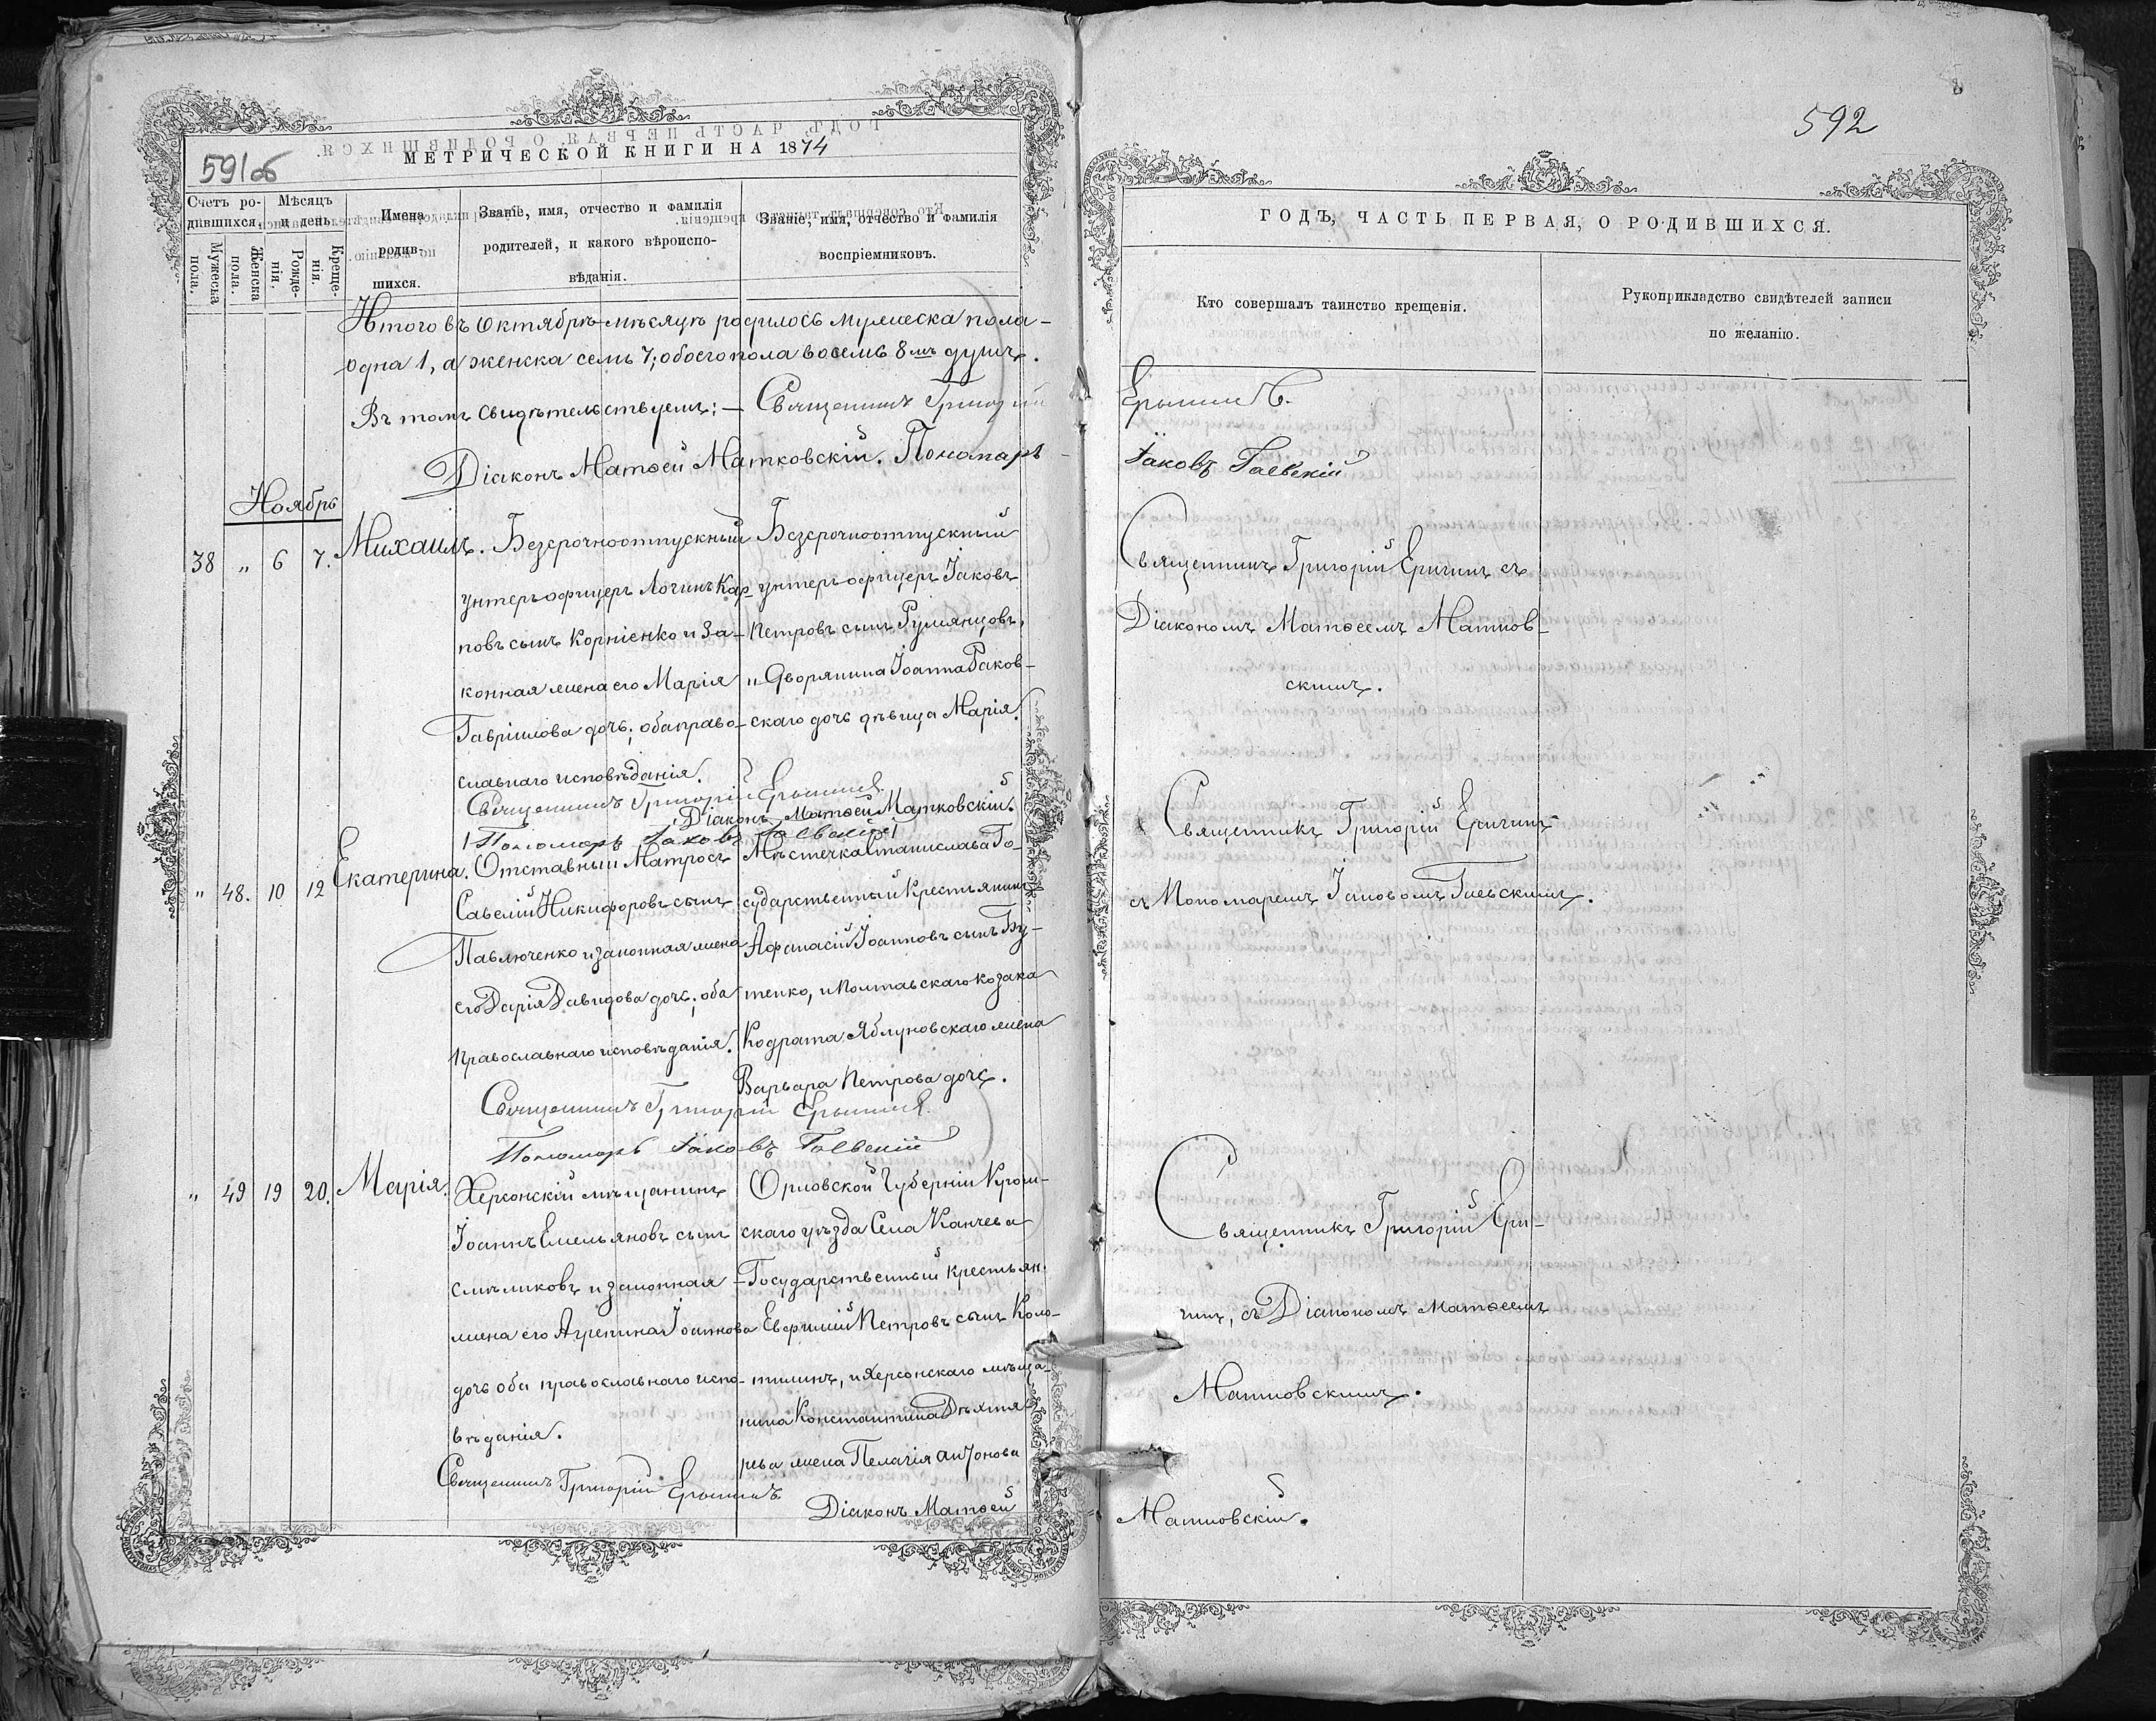 591об
МЕТРИЧЕСКОЙ КНИГИ НА 1874
Счетъ ро-
дившихся.
Мужеска
пола.
Женска
пола.
Мѣсяцъ
и день
Рожде-
нія.
Креще-
нія.
Имена
родив-
шихся.
Званіе, имя, отчество и фамилія
родителей, и какого вѣроиспо-
вѣданія.
Званіе, имя, отчество и фамилія
воспріемниковъ.
Итого въ Октябрѣ мѣсяцѣ родилось мужеска пола
одна 1, а женска семь 7; обоего пола восемь 8мъ душъ.
Въ томъ свидѣтельствуемъ: — Священникъ Григорій
Діаконъ Матѳей Матковскій. Пономарь
Ноябрь
38 „ 6 7. Михаилъ.
Безсрочноотпускный
унтеръ офицеръ Логинъ Кар-
повъ сынъ Корніенко и За-
конная жена его Марія
Гавріилова дочь; оба право-
славнаго исповѣданія.
Безсрочноотпускный
унтеръ офицеръ Іаковъ
Петровъ сынъ Румянцовъ,
„ Дворянина Іоанна Раков-
скаго дочь дѣвица Марія.
Священникъ Григорій
Діаконъ Матѳей Матковскій.
Пономарь Іаковъ Гаевскій
„ 48. 10 12 Екатерина.
Отставный Матросъ
Савелій Никифоровъ сынъ
Павлюченко и законная жена
его Дарія Давидова дочь; оба
Православнаго исповѣданія.
Мѣстечка Станислава Го-
сударственный Крестьянинъ
Афанасій Іоанновъ сынъ Бу-
тенко, и Полтавскаго козака
Кодрата Яблуновскаго жена
Варвара Петрова дочь.
Священникъ Григорій
Пономарь Іаковъ Гаевскій
„ 49 19 20. Марія.
Херсонскій мѣщанинъ
Іоаннъ Емельяновъ сынъ
Смѣликовъ и законная
жена его Агрепина Іоаннова
дочь оба православнаго испо-
вѣданія.
Орловской Губерніи Кром-
скаго уѣзда Села Канчева
Государственный крестьян.
Евфимій Петровъ сынъ Коло-
тилинъ, и Херсонскаго мѣща-
нина Константина Дѣхтя
рева жена Пелагія Антонова
Священникъ Григорій
Діаконъ Матѳей
592
ГОДЪ, ЧАСТЬ ПЕРВАЯ, О РОДИВШИХСЯ.
Кто совершалъ таинство крещенія.
Рукоприкладство свидѣтелей записи
по желанію.
Іаковъ Гаевскій
Священникъ Григорій Еригинъ съ
Діакономъ Матѳеемъ Матков-
скимъ.
Священникъ Григорій Еригинъ
съ Пономаремъ Іаковомъ Гаевскимъ.
Священникъ Григорій Ери-
гинъ, съ Діакономъ Матѳеемъ
Матковскимъ.
Матковскій.